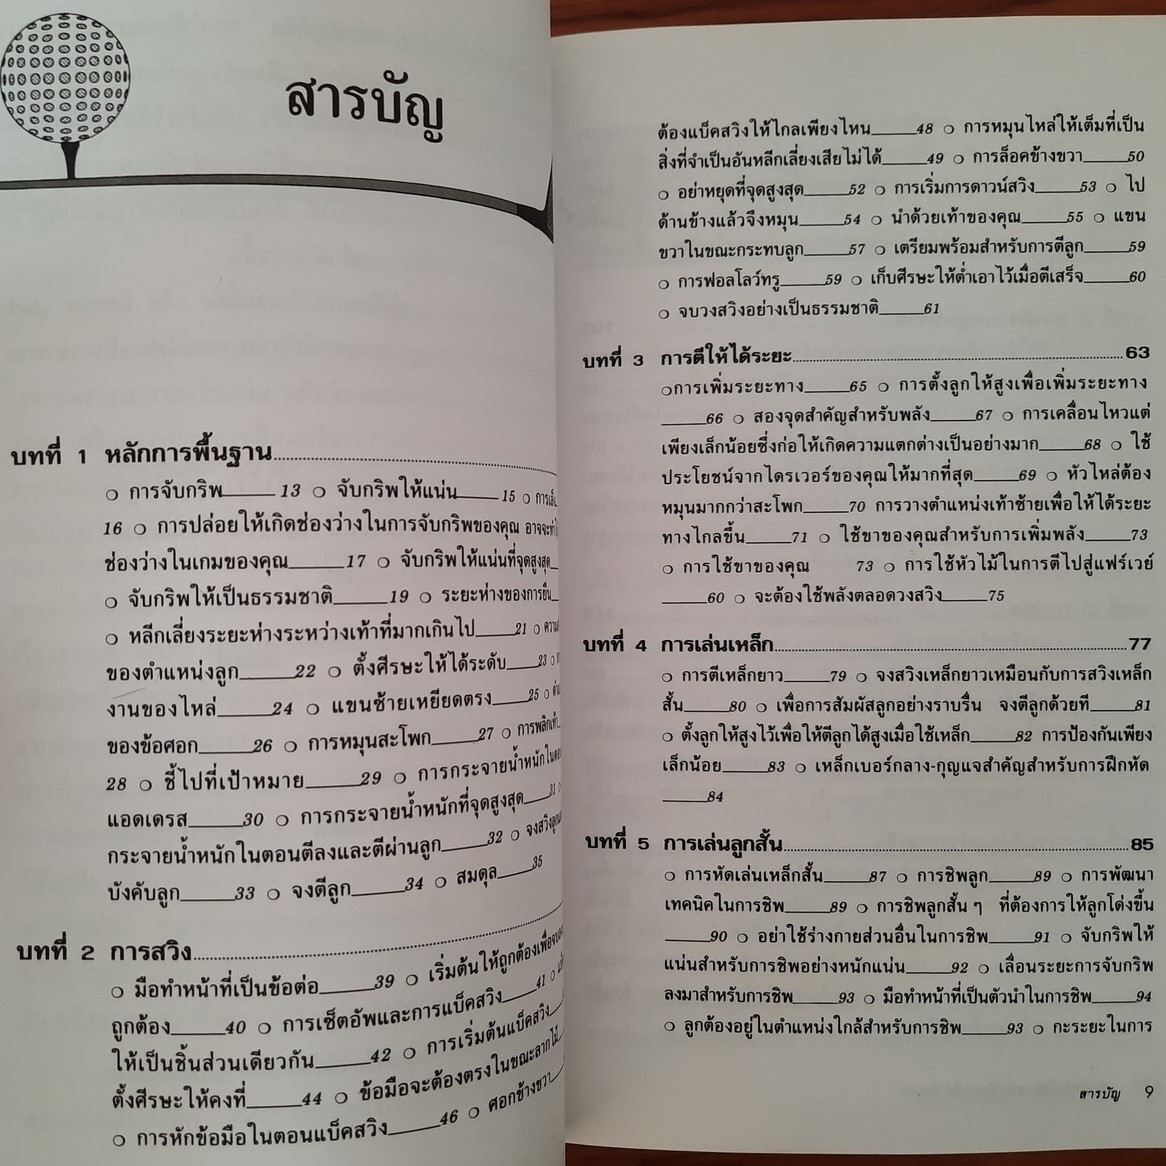 สารบัญ
บทที่ 1 หลักการพื้นฐาน
❍ การจับกริพ_____13 ❍ จับกริพให้แน่น_____15 ❍
16 ❍ การปล่อยให้เกิดช่องว่างในการจับกริพของคุณ
ช่องว่างในเกมของคุณ_____17 ❍ จับกริพให้แน่นที่จุดสูงสุด
❍ จับกริพให้เป็นธรรมชาติ_____19 ❍ ระยะห่างของการยืน
❍ หลีกเลี่ยงระยะห่างระหว่างเท้าที่มากเกินไป_____21 ❍
ของตำแหน่งลูก_____22 ❍ ตั้งศีรษะให้ได้ระดับ_____23 ❍
งานของไหล่_____24 ❍ แขนซ้ายเหยียดตรง_____25 ❍
ของข้อศอก_____26 ❍ การหมุนสะโพก_____27 ❍
28 ❍ ชี้ไปที่เป้าหมาย_____29 ❍ การกระจายน้ำหนักในตอน
แอดเดรส_____30 ❍ การกระจายน้ำหนักที่จุดสูงสุด_____31
กระจายน้ำหนักในตอนตีลงและตีผ่านลูก_____32 ❍
บังคับลูก_____33 ❍ จงตีลูก_____34 ❍ สมดุล_____35
บทที่ 2 การสวิง
❍ มือทำหน้าที่เป็นข้อต่อ_____39 ❍ เริ่มต้นให้ถูกต้องเพื่อ
ถูกต้อง_____40 ❍ การเซ็ตอัพและการแบ็คสวิง_____41 ❍
ให้เป็นชิ้นส่วนเดียวกัน_____42 ❍ การเริ่มต้นแบ็คสวิง
ตั้งศีรษะให้คงที่_____44 ❍ ข้อมือจะต้องตรงในขณะลากไม้
❍ การหักข้อมือในตอนแบ็คสวิง_____46 ❍ ศอกข้างขวา
ต้องแบ็คสวิงให้ไกลเพียงไหน_____48 ❍ การหมุนไหล่ให้เต็มที่เป็น
สิ่งที่จำเป็นอันหลีกเลี่ยงเสียไม่ได้_____49 ❍ การล็อคข้างขวา_____50
❍ อย่าหยุดที่จุดสูงสุด_____52 ❍ การเริ่มการดาวน์สวิง_____53 ❍ ไป
ด้านข้างแล้วจึงหมุน_____54 ❍ นำด้วยเท้าของคุณ_____55 ❍ แขน
ขวาในขณะกระทบลูก_____57 ❍ เตรียมพร้อมสำหรับการตีลูก_____59
❍ การฟอลโลว์ทรู_____59 ❍ เก็บศีรษะให้ต่ำเอาไว้เมื่อตีเสร็จ_____60
❍ จบวงสวิงอย่างเป็นธรรมชาติ_____61
บทที่ 3 การตีให้ได้ระยะ 63
❍การเพิ่มระยะทาง_____65 ❍ การตั้งลูกให้สูงเพื่อเพิ่มระยะทาง
_____66 ❍ สองจุดสำคัญสำหรับพลัง_____67 ❍ การเคลื่อนไหวแต่
เพียงเล็กน้อยซึ่งก่อให้เกิดความแตกต่างเป็นอย่างมาก_____68 ❍ ใช้
ประโยชน์จากไดรเวอร์ของคุณให้มากที่สุด_____69 ❍ หัวไหล่ต้อง
หมุนมากกว่าสะโพก_____70 การวางตำแหน่งเท้าซ้ายเพื่อให้ได้ระยะ
ทางไกลขึ้น_____71 ❍ ใช้ขาของคุณสำหรับการเพิ่มพลัง_____73
❍ การใช้ขาของคุณ 73 ❍ การใช้หัวไม้ในการตีไปสู่แฟร์เวย์
_____60 ❍ จะต้องใช้พลังตลอดวงสวิง_____75
บทที่ 4 การเล่นเหล็ก 77
❍ การตีเหล็กยาว_____79 ❍ จงสวิงเหล็กยาวเหมือนกับการสวิงเหล็ก
สั้น_____80 ❍ เพื่อการสัมผัสลูกอย่างราบรื่น จงตีลูกด้วยที_____81
❍ ตั้งลูกให้สูงไว้เพื่อให้ตีลูกได้สูงเมื่อใช้เหล็ก_____82 การป้องกันเพียง
เล็กน้อย_____83 ❍ เหล็กเบอร์กลาง-กุญแจสำคัญสำหรับการฝึกหัด
_____84
บทที่ 5 การเล่นลูกสั้น 85
❍ การหัดเล่นเหล็กสั้น_____87 ❍ การชิพลูก_____89 ❍ การพัฒนา
เทคนิคในการชิพ_____89 ❍ การชิพลูกสั้น ๆ ที่ต้องการให้ลูกโด่งขึ้น
_____90 ❍ อย่าใช้ร่างกายส่วนอื่นในการชิพ_____91 ❍ จับกริพให้
แน่นสำหรับการชิพอย่างหนักแน่น_____92 ❍ เลื่อนระยะการจับกริพ
ลงมาสำหรับการชิพ_____93 ❍ มือทำหน้าที่เป็นตัวนำในการชิพ_____94
❍ ลูกต้องอยู่ในตำแหน่งใกล้สำหรับการชิพ_____93 ❍ กะระยะในการ
สารบัญ 9